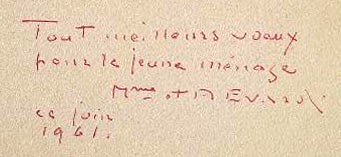 Tout meilleurs vœux
pour le jeune ménage
Mme et
ce juin
1961.